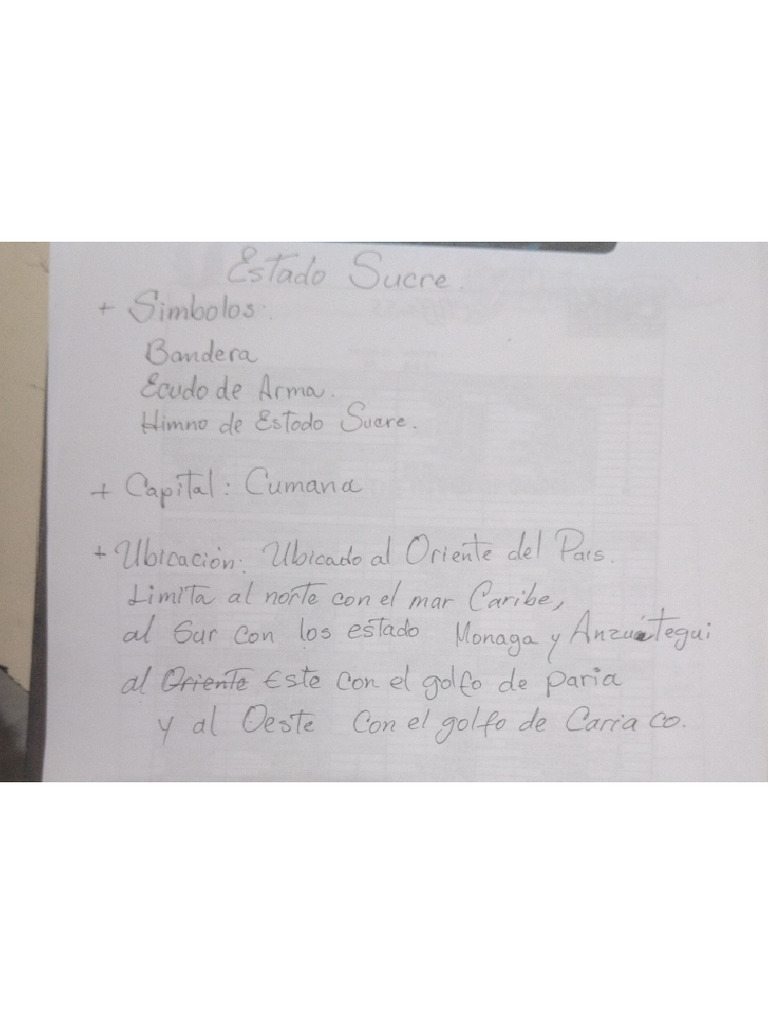 Estado Sucre.
+ Simbolos:
Bandera
Ecudo de Arma.
Himno de Estado Sucre.
+ Capital: Cumana
+ Ubicación: Ubicado al Oriente del Pais.
Limita al norte con el mar Caribe,
al Sur con los estado Monaga y Anzuátegui
al Oriente Este con el golfo de paria
y al Oeste Con el golfo de Cariaco.